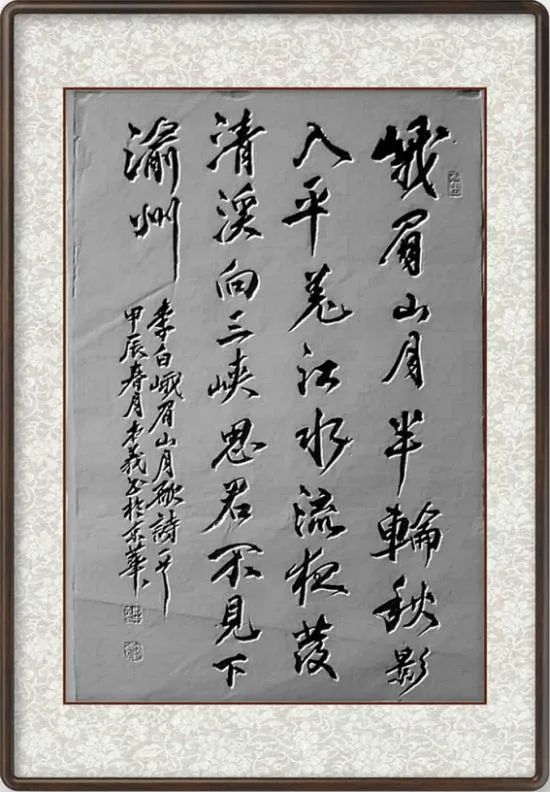 峨眉山月半輪秋影
入平羌江水流夜發
清溪向三峡思君不見下
渝州
李白峨眉山月歌詩一首
甲辰春月本義书於京華